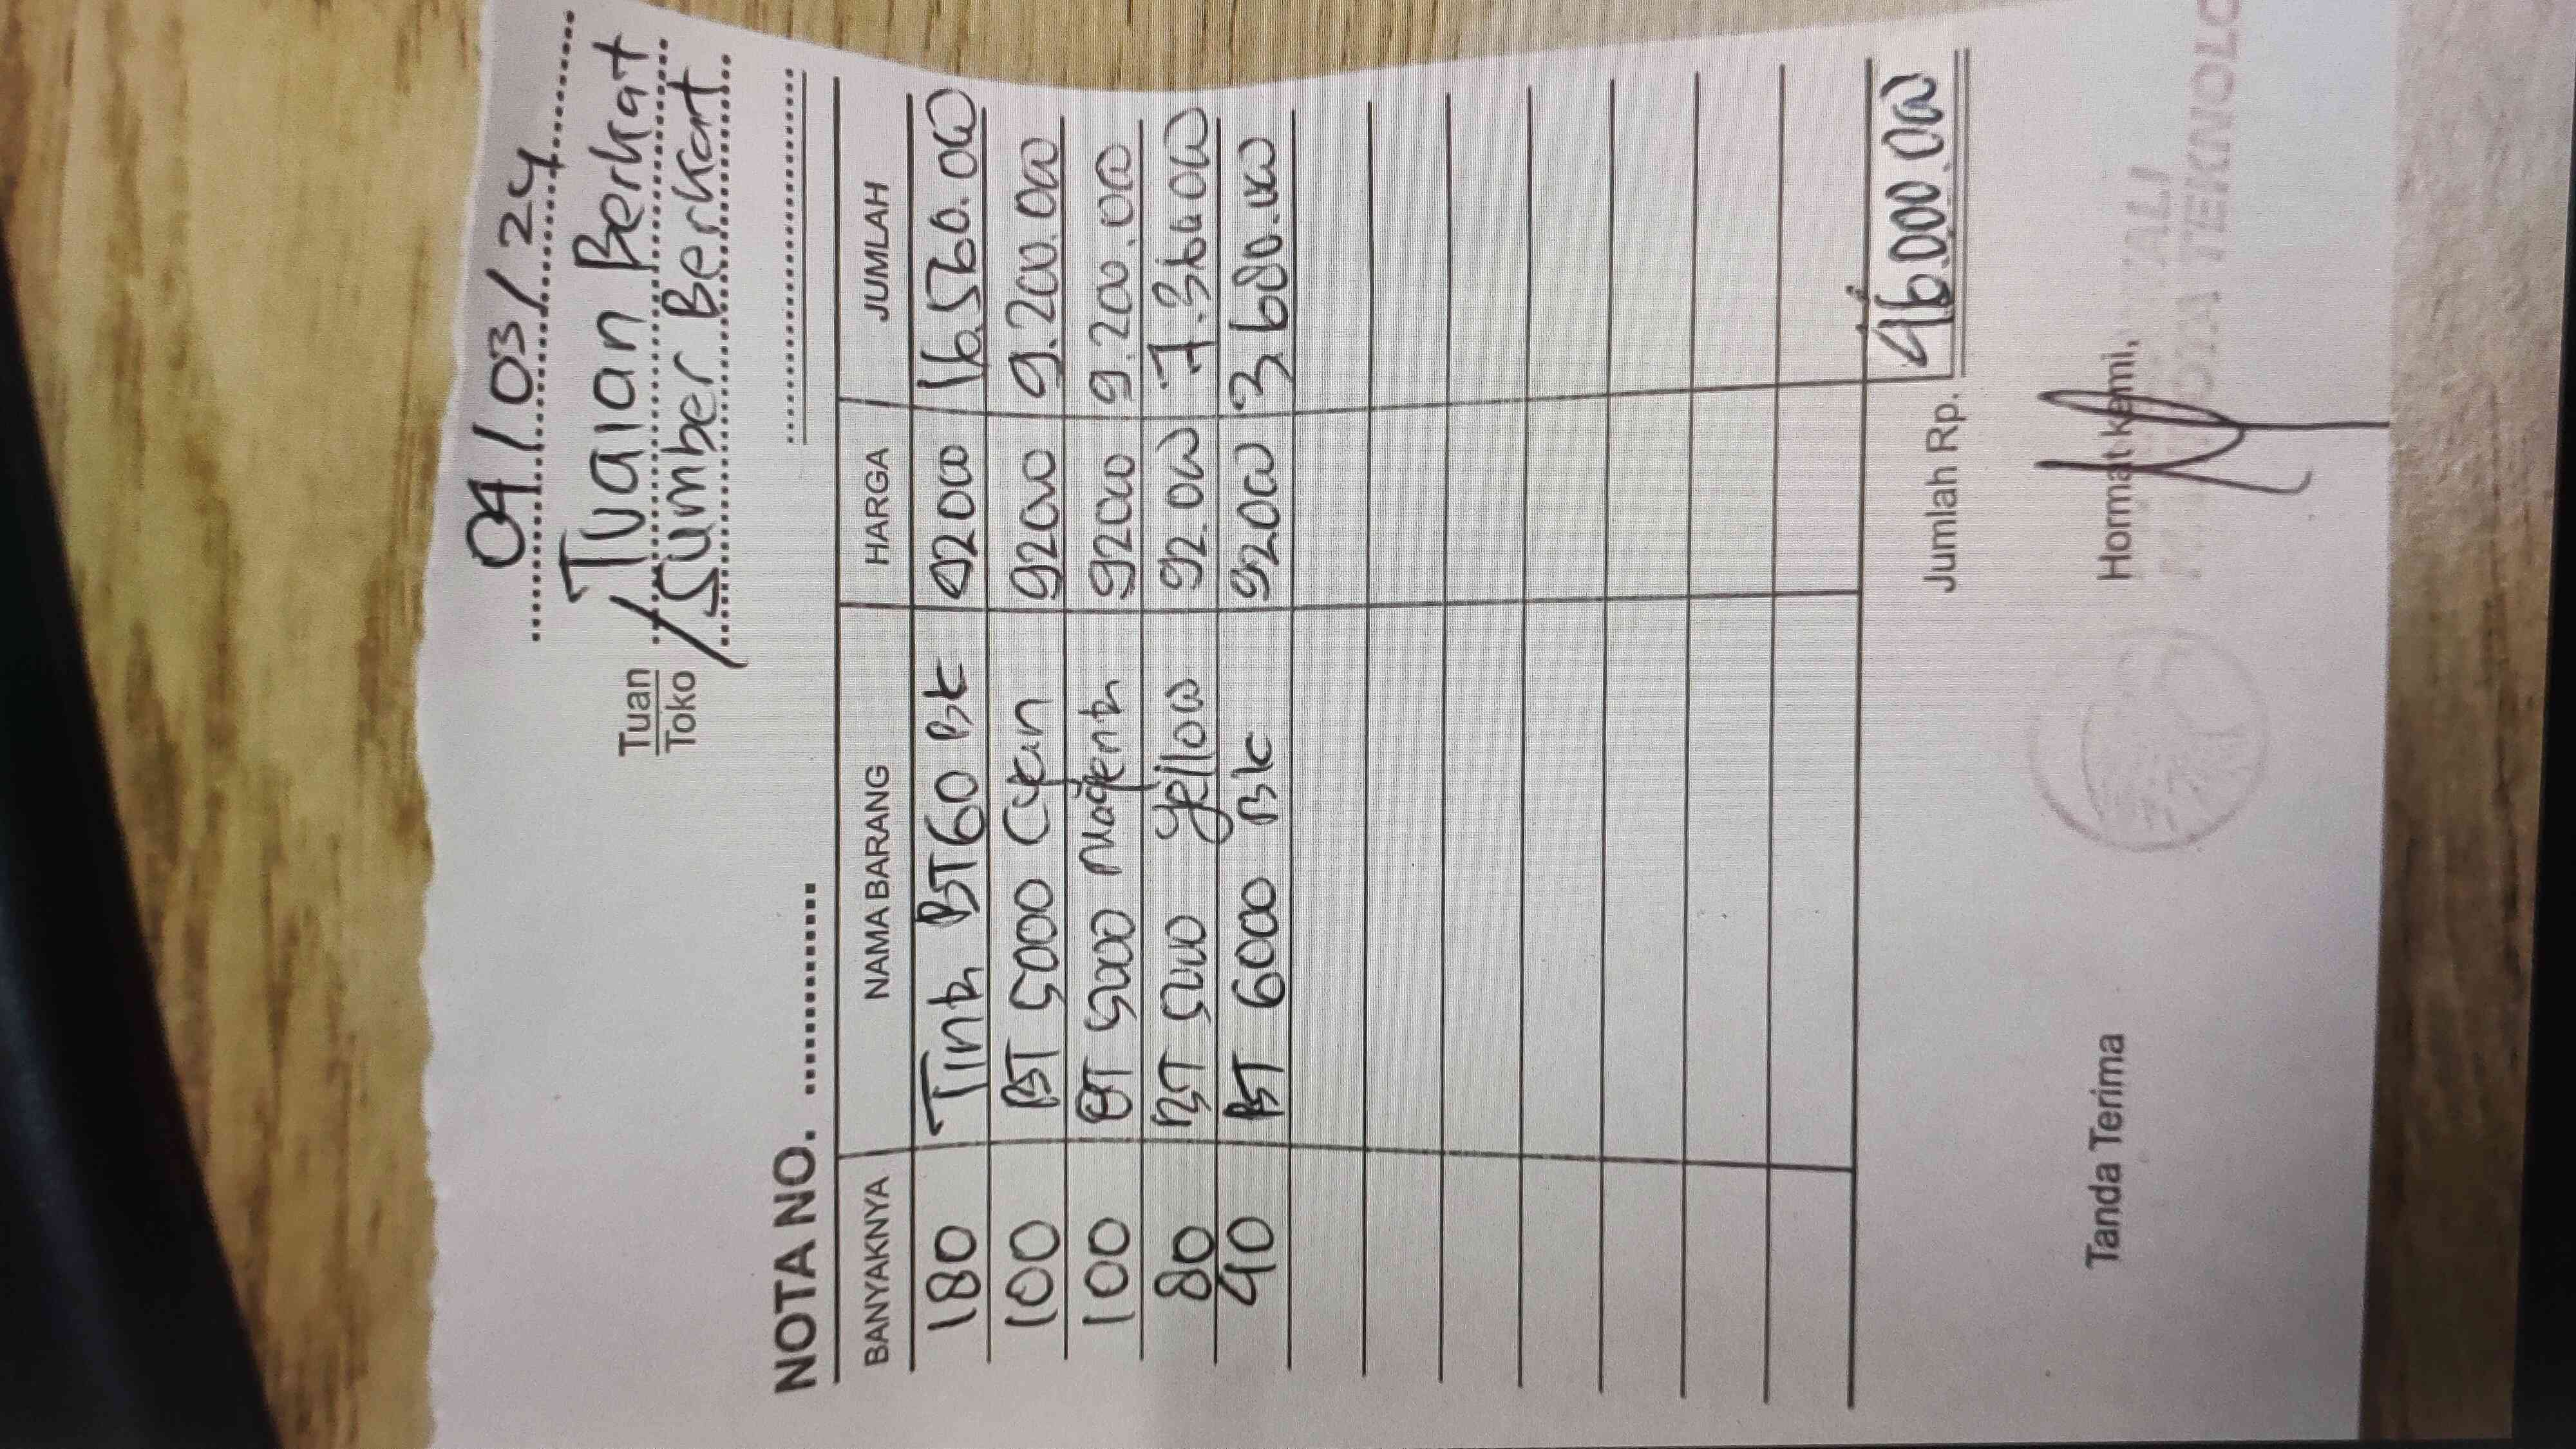 04/03/24
Tuan / Tuaian Berkat
Toko / Sumber Berkat
NOTA NO.
BANYAKNYA NAMA BARANG HARGA JUMLAH
180 Tinta BT60 BK 92000 16.560.000
100 BT 5000 Cyan 92000 9.200.000
100 BT 5000 Magenta 92000 9.200.000
80 BT 5000 Yellow 92.000 7.360.000
40 BT 6000 BK 92000 3.680.000
Jumlah Rp. 46.000.000
Tanda Terima Hormat kami,
TEKNOLO